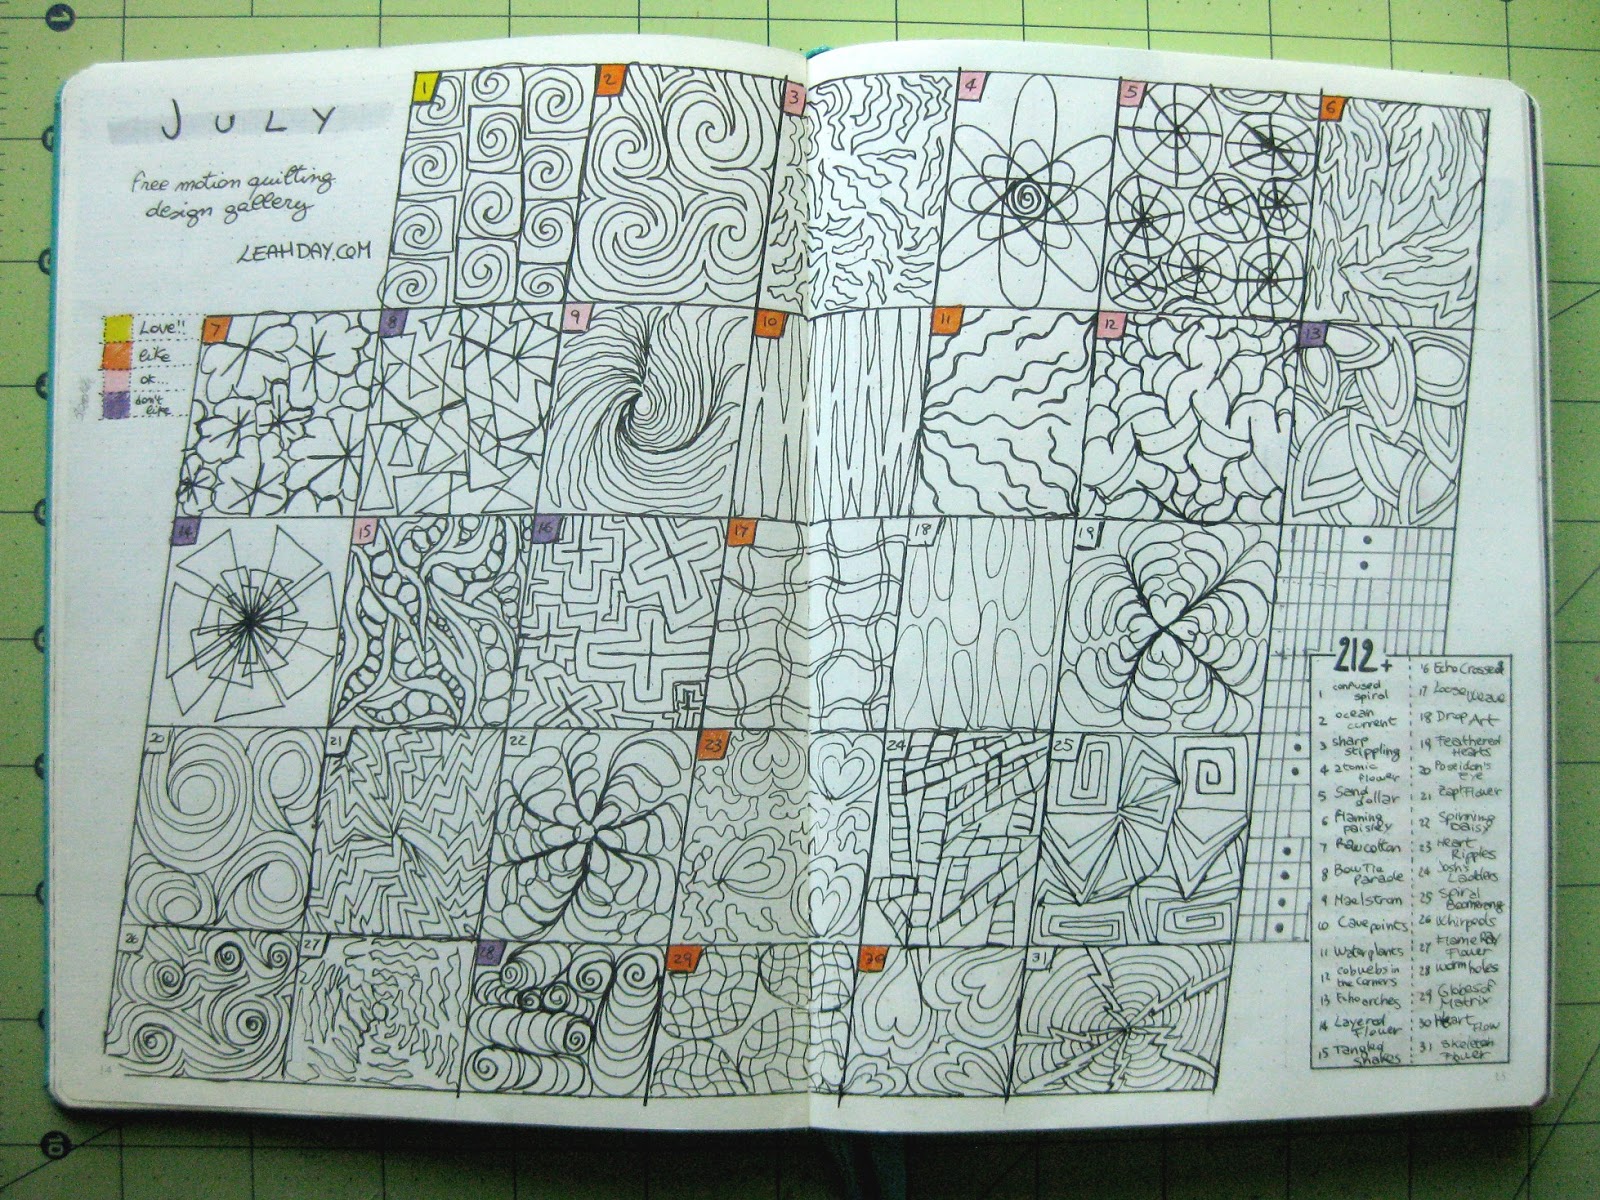 JULY
free motion quilting
design gallery
LEAHDAY.COM
1
2
3
4
5
6
Love!!
like
ok...
don't
like
7
8
9
10
11
12
13
14
15
16
17
18
19
20
21
22
23
24
25
26
27
28
29
30
31
212+
1 confused
spiral
2 ocean
current
3 sharp
stippling
4 atomic
flower
5 Sand
dollar
6 Flaming
paisley
7 Raw cotton
8 Bow Tie
Parade
9 Maelstrom
10 Cave points
11 Water plants
12 cobwebs in
the corners
13 Echo arches
14 Layered
Flower
15 Tangled
Snakes
16 Echo Crosses
17 Loose Weave
18 Drop Art
19 Feathered
Hearts
20 Poseidon's
Eye
21 Zap! Flower
22 Spinning
Daisy
23 Heart
Ripples
24 Josh's
Ladders
25 Spiral
Boomerang
26 Whirpools
27 Flame Ray
Flower
28 Worm holes
29 Globes of
Matrix
30 Heart
Flow
31 Skeleton
Flower
14
10